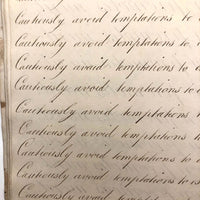 Cautiously avoid temptations to
Cautiously avoid temptations to
Cautiously avoid temptations to
Cautiously avoid temptations to
Cautiously avoid temptations to
Cautiously avoid temptations to
Cautiously avoid temptations to
Cautiously avoid temptations to
Cautiously avoid temptations to